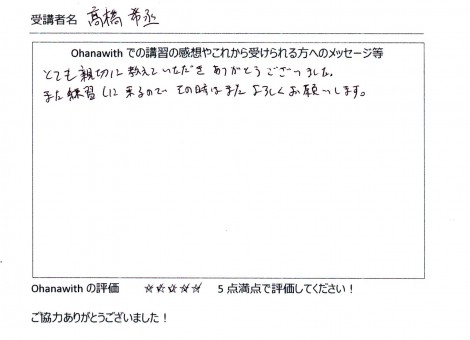 受講者名 髙橋 希丞
Ohanawith での講習の感想やこれから受けられる方へのメッセージ等
とても親切に教えていただきありがとうございました。
また練習しに来るので、その時はまたよろしくお願いします。
Ohanawith の評価 ☆☆☆☆☆ 5 点満点で評価してください！
ご協力ありがとうございました！